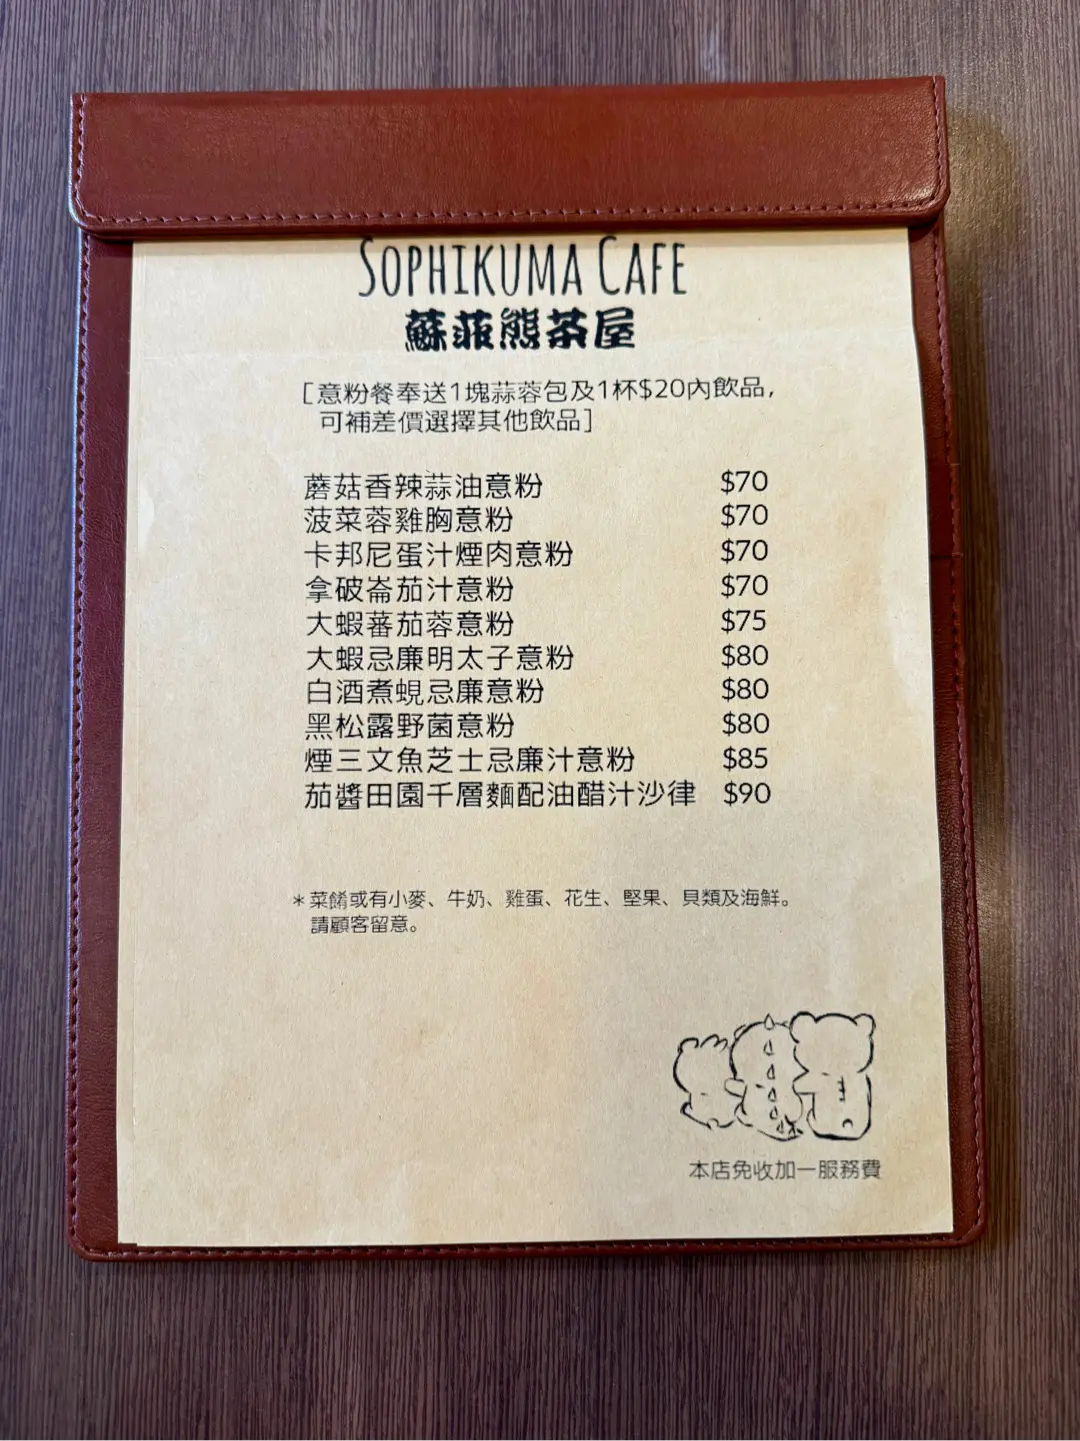 SOPHIKUMA CAFE
蘇菲熊茶屋
[意粉餐奉送1塊蒜蓉包及1杯$20內飲品,
可補差價選擇其他飲品]
蘑菇香辣蒜油意粉 $70
菠菜蓉雞胸意粉 $70
卡邦尼蛋汁煙肉意粉 $70
拿破崙茄汁意粉 $70
大蝦蕃茄蓉意粉 $75
大蝦忌廉明太子意粉 $80
白酒煮蜆忌廉意粉 $80
黑松露野菌意粉 $80
煙三文魚芝士忌廉汁意粉 $85
茄醬田園千層麵配油醋汁沙律 $90
*菜餚或有小麥、牛奶、雞蛋、花生、堅果、貝類及海鮮。
請顧客留意。
本店免收加一服務費